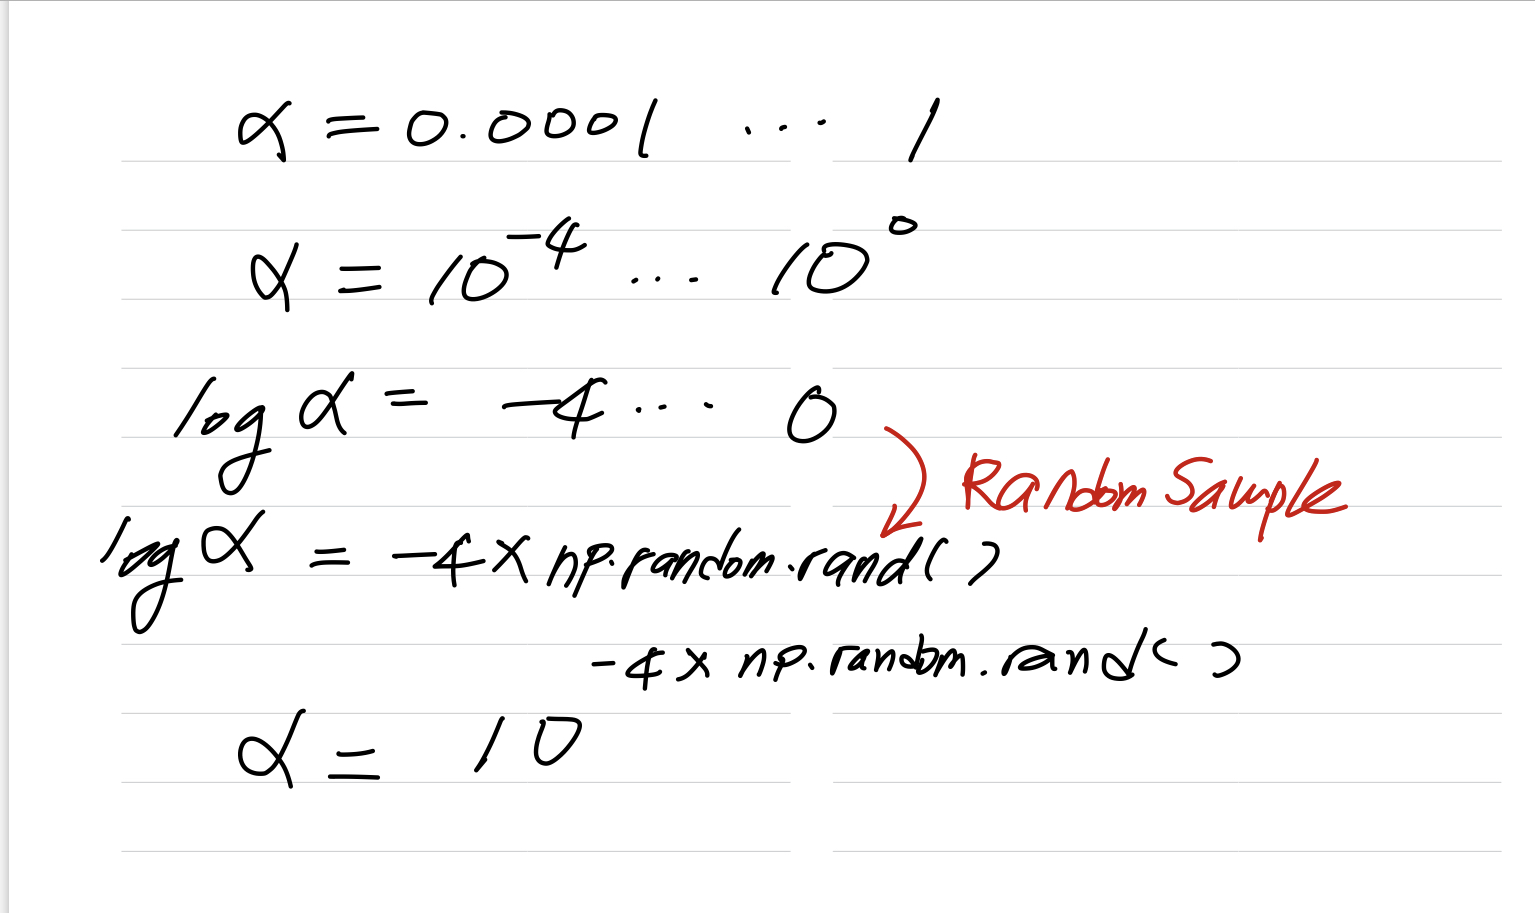 α = 0.0001 ... 1
α = 10⁻⁴ ... 10⁰
log α = -4 ... 0
Random Sample
log α = -4 × np.random.rand( )
-4 × np.random.rand( )
α = 10